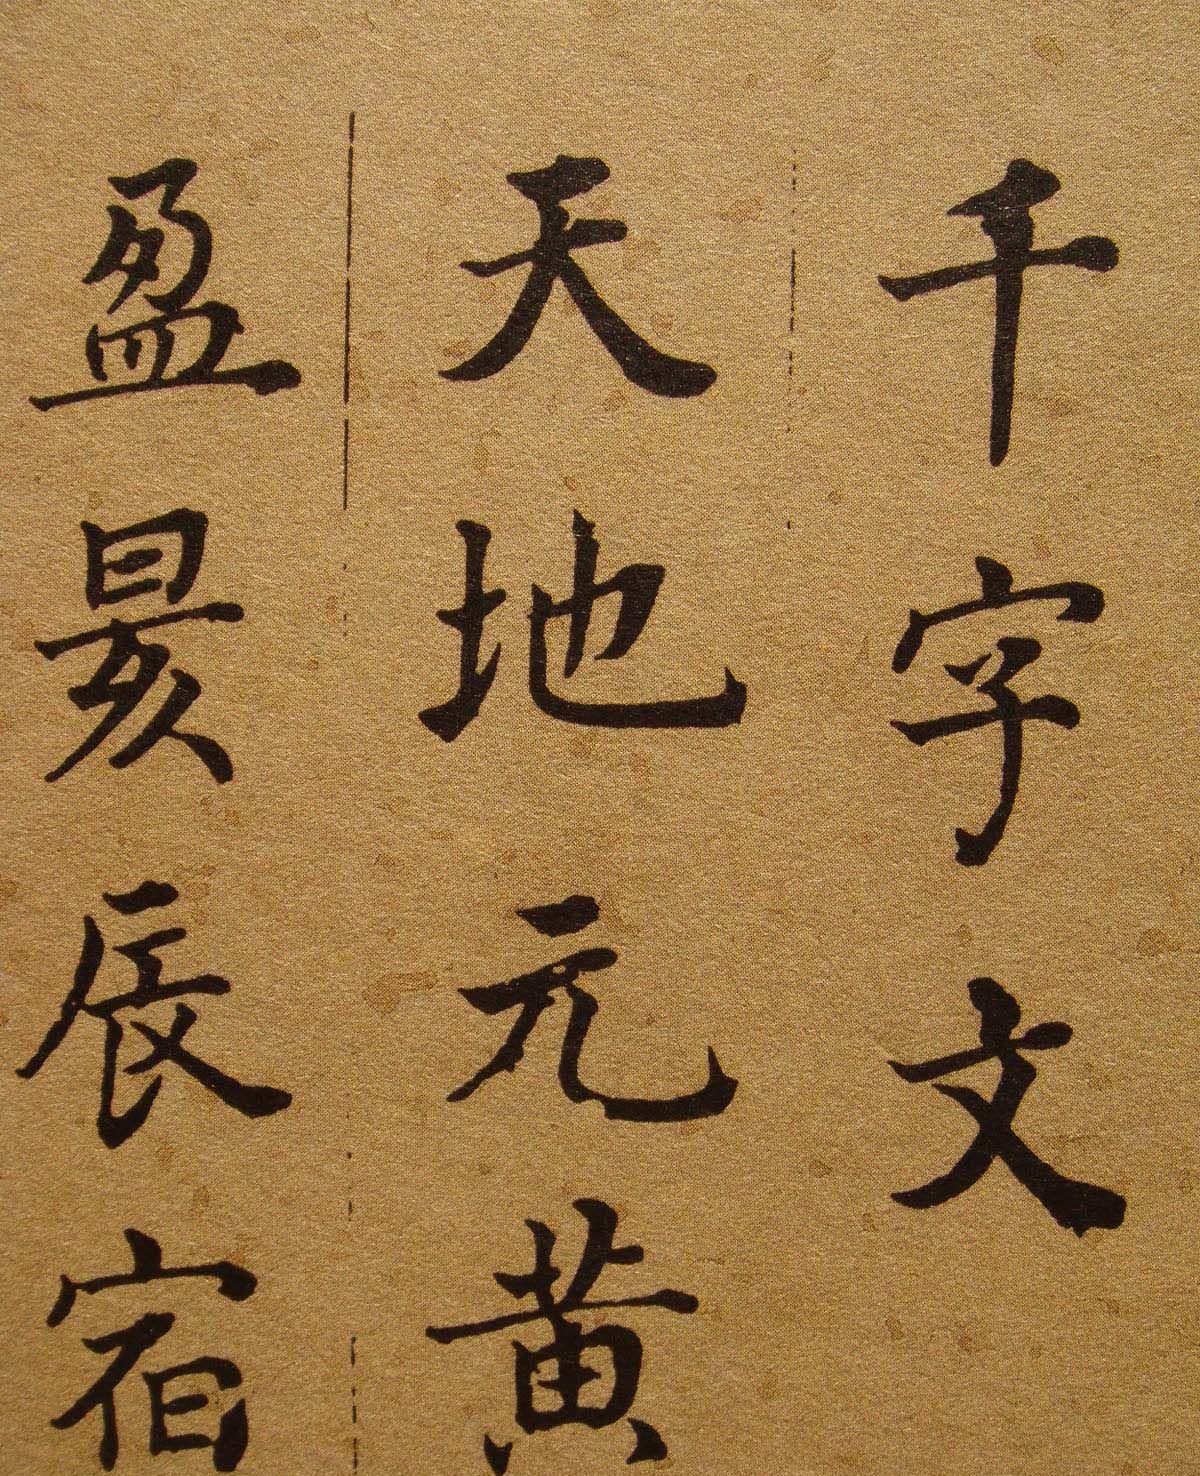 千字文
天地元黄
盈昃辰宿